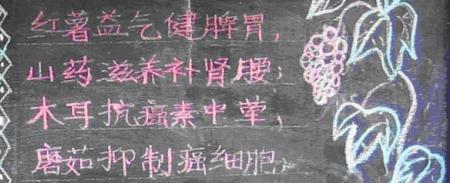 红薯益气健脾胃，
山药滋养补肾腰；
木耳抗癌素中荤，
磨茹抑制癌细胞；